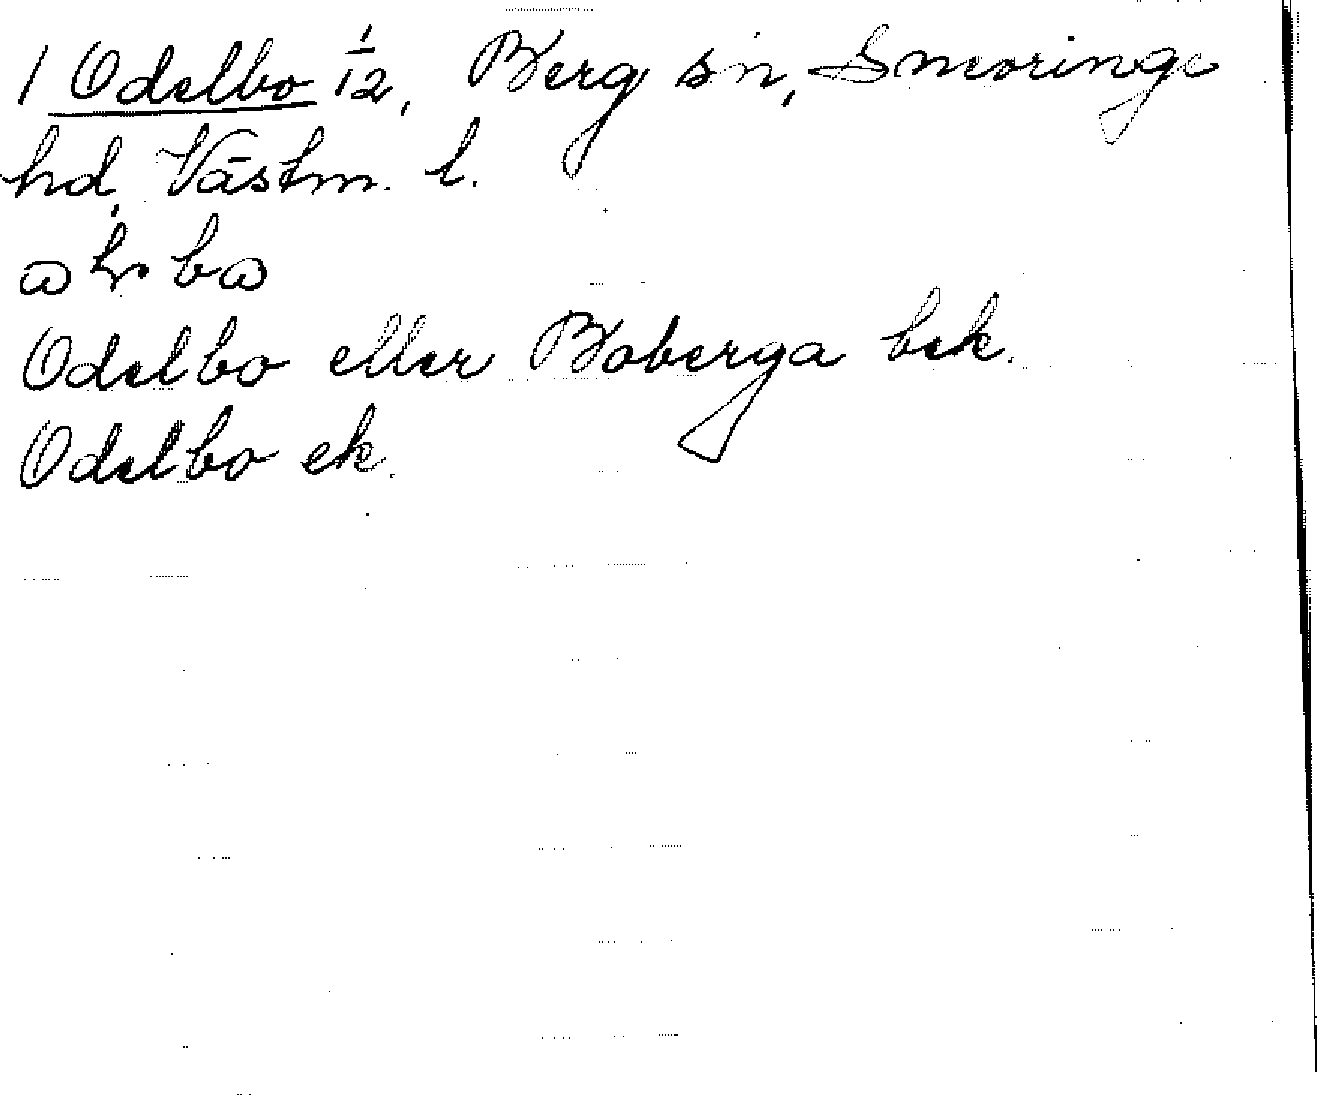 1 Odelbo 1/12, Berg sn, Snevringe
hd, Västm. l.
Odelbo eller Boberga bek.
Odelbo ek.